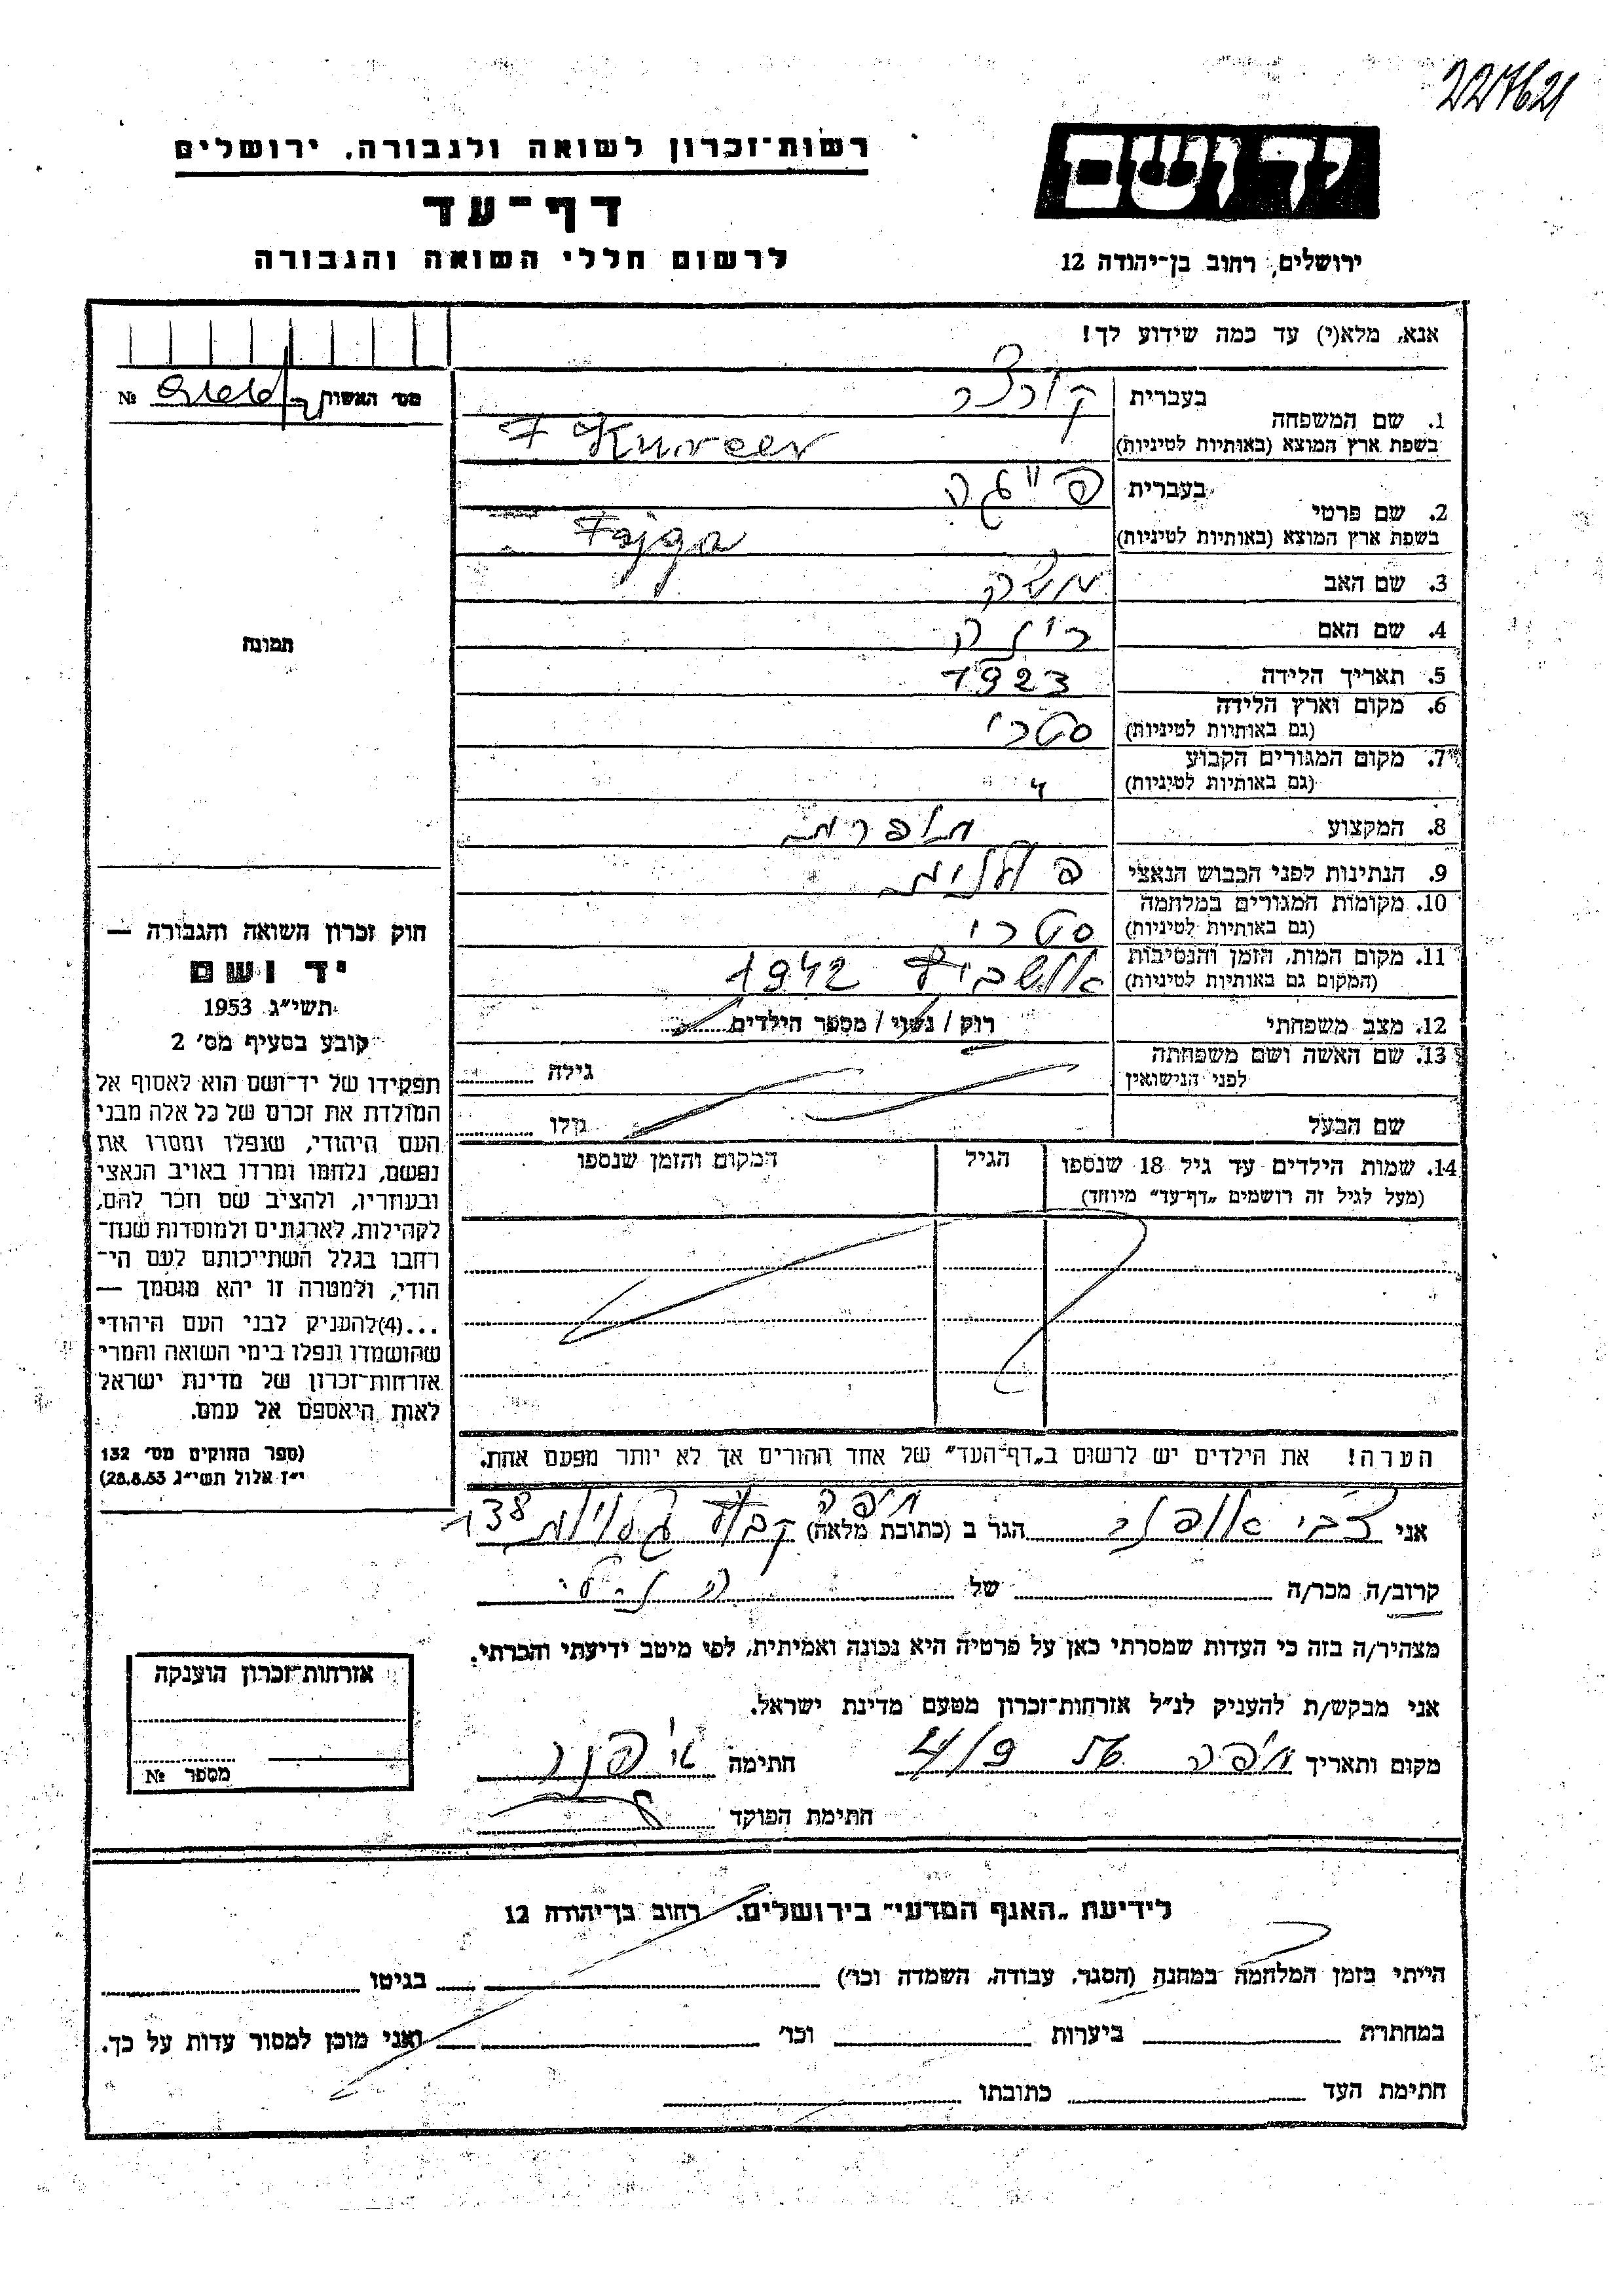 227621
רשות־זכרון לשואה ולגבורה, ירושלים
דף־עד
לרשום חללי השואה והגבורה
ידושם
ירושלים, רחוב בן־יהודה 12
אנא, מלא(י) עד כמה שידוע לך!
מס' האשות №
תמונה
חוק זכרון השואה והגבורה —
יד ושם
תשי״ג 1953
קובע בסעיף מס׳ 2
תפקידו של יד־ושם הוא לאסוף אל
המולדת את זכרם של כל אלה מבני
העם היהודי, שנפלו ומסרו את
נפשם, נלחמו ומרדו באויב הנאצי
ובעוזריו, ולהציב שם וזכר להם,
לקהילות, לארגונים ולמוסדות שנח־
רחבו בגלל השתייכותם לעם הי־
הודי, ולמטרה זו יהא מוסמך —
...(4)להעניק לבני העם היהודי
שהושמדו ונפלו בימי השואה והמרי
אזרחות־זכרון של מדינת ישראל
לאות היאספם אל עמם.
(ספר החוקים מס׳ 132
י״ז אלול תשי״ג 28.8.53)
1. שם המשפחה בעברית קורצר
בשפת ארץ המוצא (באותיות לטיניות) Kurcer
2. שם פרטי בעברית פייגה
בשפת ארץ המוצא (באותיות לטיניות) Fajga
3. שם האב משה
4. שם האם
5. תאריך הלידה 1923
6. מקום וארץ הלידה
(גם באותיות לטיניות) סטרי
7. מקום המגורים הקבוע
(גם באותיות לטיניות) "
8. המקצוע תופרת
9. הנתינות לפני הכבוש הנאצי פולנית
10. מקומות המגורים במלחמה
(גם באותיות לטיניות) סטרי
11. מקום המות, הזמן והנסיבות
(המקום גם באותיות לטיניות) אושביץ 1942
12. מצב משפחתי רווק / נשוי / מספר הילדים
13. שם האשה ושם משפחתה
לפני הנישואין גילה
שם הבעל גילו
14. שמות הילדים עד גיל 18 שנספו הגיל המקום והזמן שנספו
(מעל לגיל זה רושמים „דף־עד״ מיוחד)
הערה! את הילדים יש לרשום ב„דף־העד״ של אחד ההורים אך לא יותר מפעם אחת.
אני צבי הגר ב (כתובת מלאה) חיפה קבוץ גלויות 138
קרוב/ה מכר/ה של
מצהיר/ה בזה כי העדות שמסרתי כאן על פרטיה היא נכונה ואמיתית, לפי מיטב ידיעתי והכרתי.
אני מבקש/ת להעניק לנ״ל אזרחות־זכרון מטעם מדינת ישראל.
מקום ותאריך חיפה 4/9 56 חתימה
חתימת הפוקד
אזרחות־זכרון הוענקה
מספר №
לידיעת „האגף המדעי״ בירושלים. רחוב בן־יהודה 12
הייתי בזמן המלחמה במחנה (הסגר, עבודה, השמדה וכו׳) בגיטו
במחתרת ביערות וכו׳ ואני מוכן למסור עדות על כך.
חתימת העד כתובתו